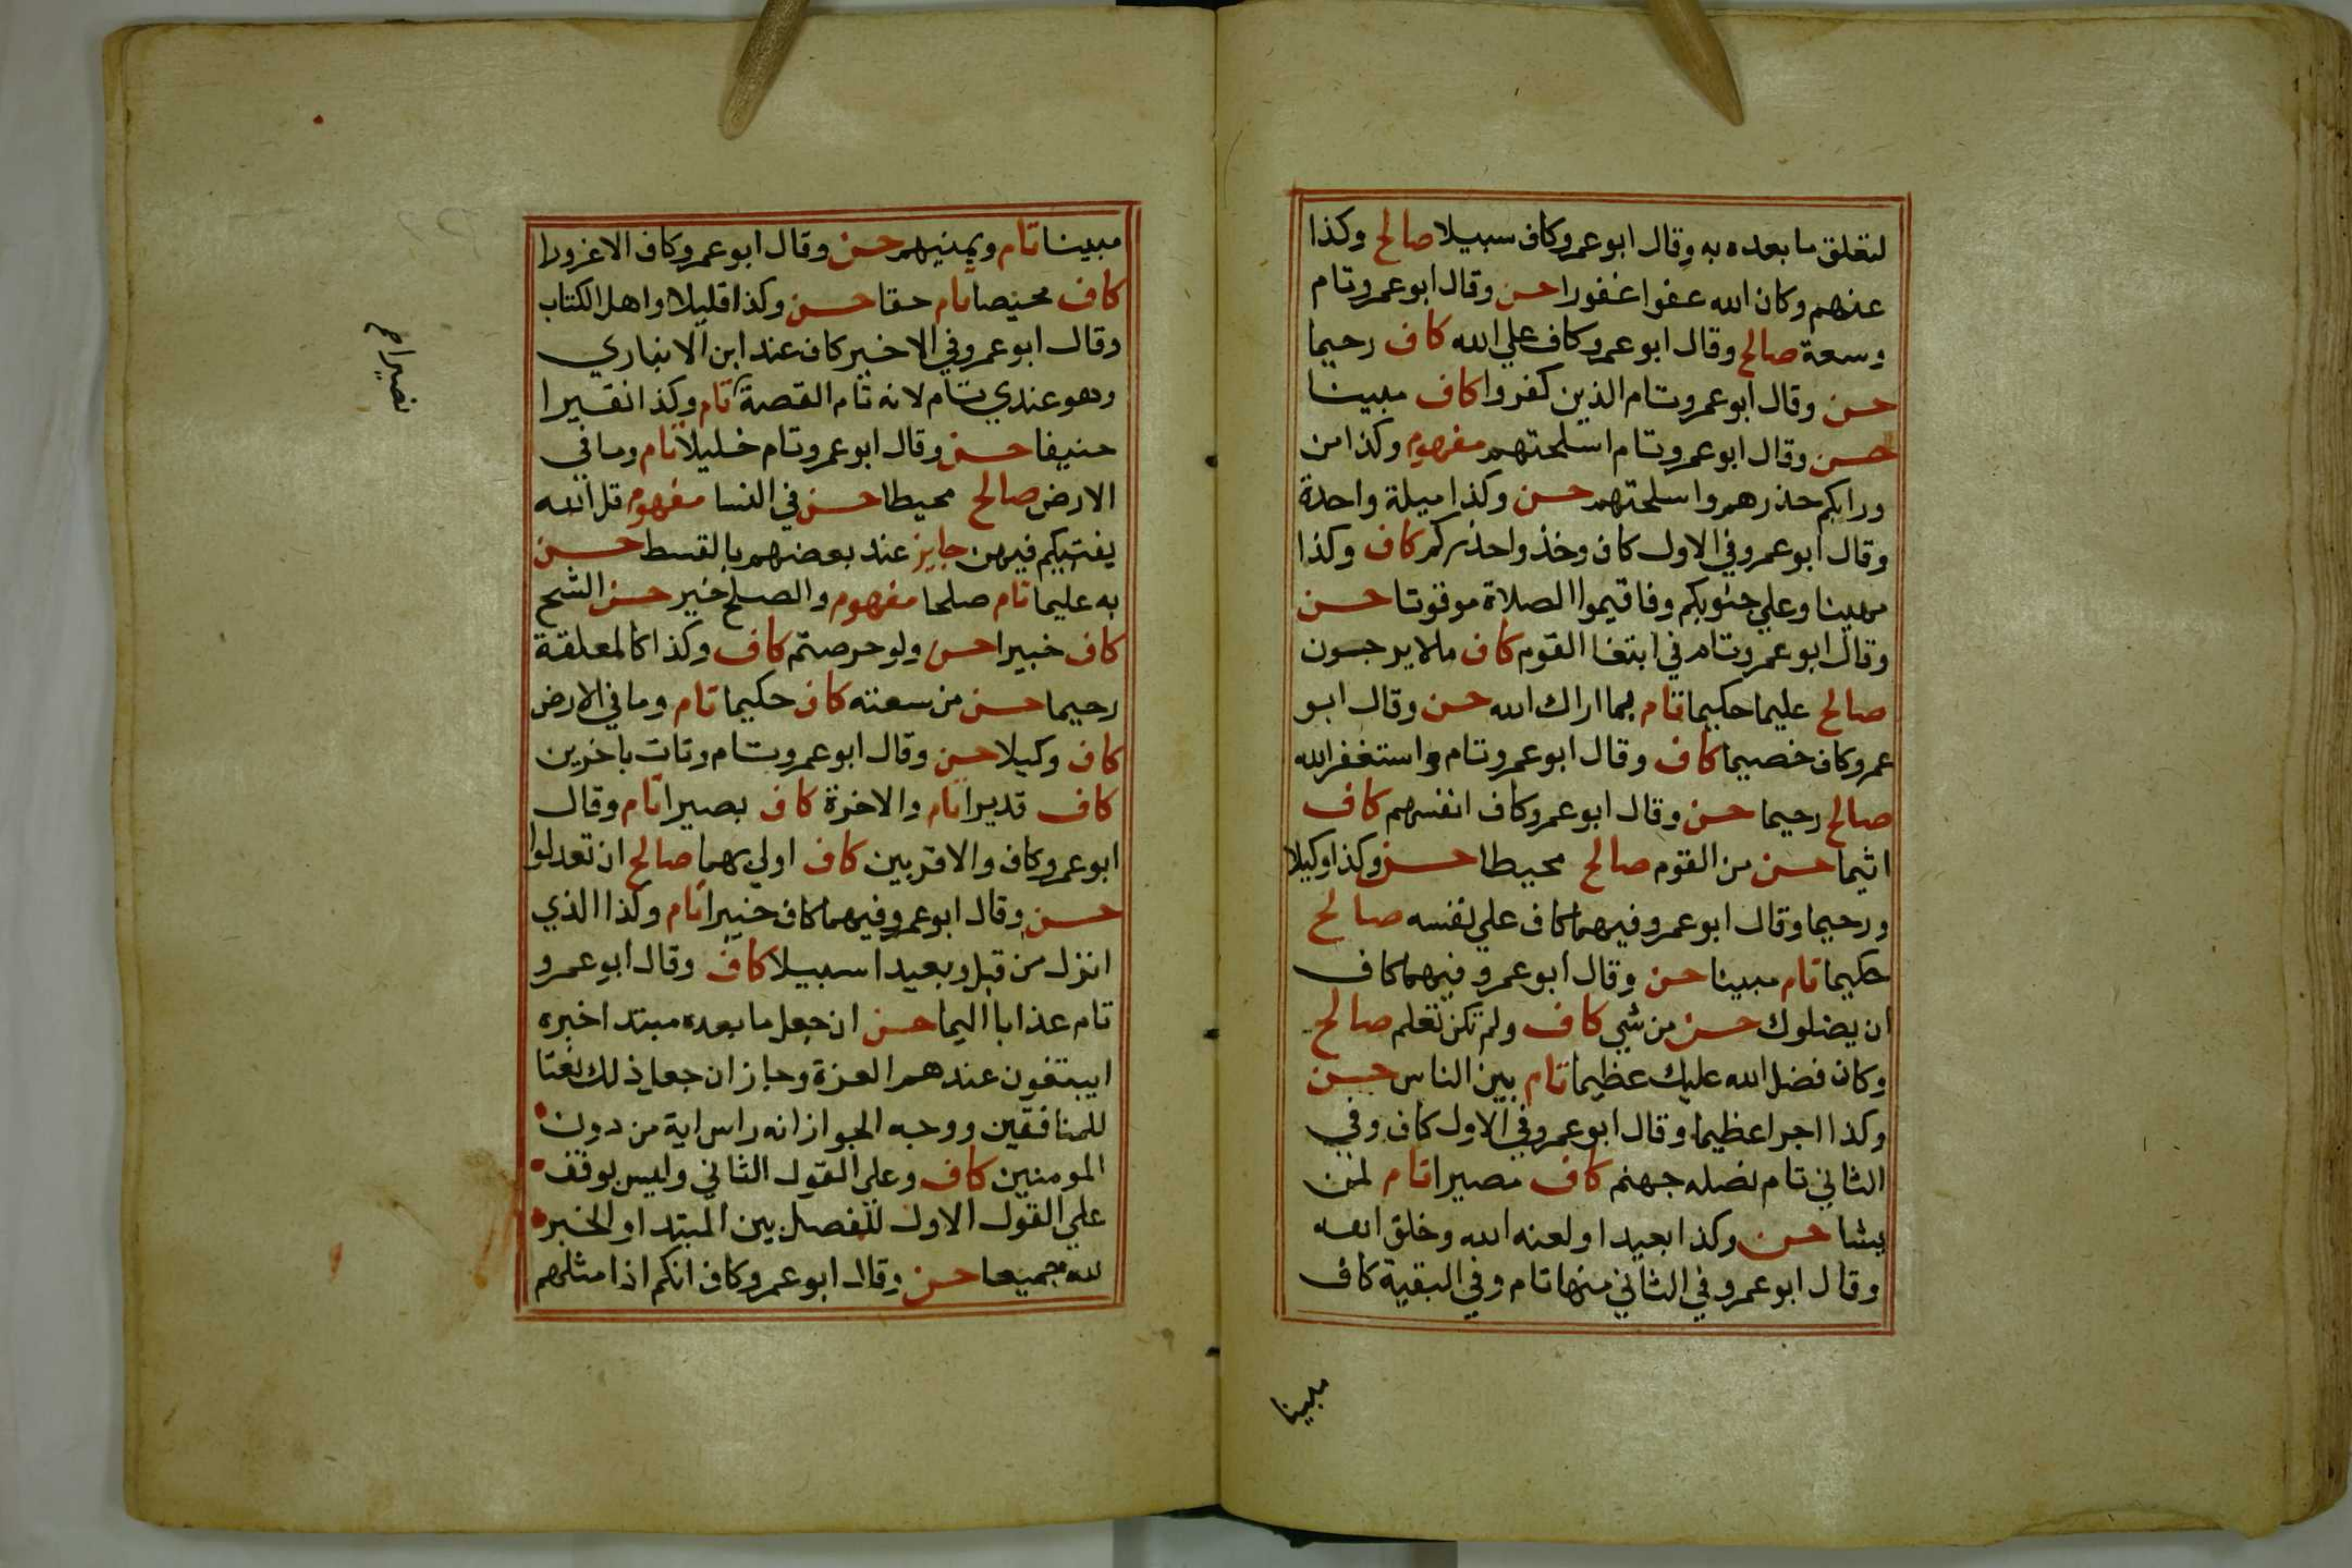 لتعلق ما بعده به وقال ابو عمرو كاف سبيلا صالح وكذا
عنهم وكان الله عفوا غفورا حسن وقال ابو عمرو تام
وسعة صالح وقال ابو عمرو كاف علي الله كاف رحيما
حسن وقال ابو عمرو تام الذين كفروا كاف مبينا
حسن وقال ابو عمرو تام اسلحتهم مفهوم وكذا من
ورايكم حذرهم واسلحتهم حسن وكذا ميلة واحدة
وقال ابو عمرو في الاول كاف وخذوا حذركم كاف وكذا
مهينا وعلي جنوبكم وفاقيموا الصلاة موقوتا حسن
وقال ابو عمرو تام في ابتغا القوم كاف ملا يرجون
صالح عليما حكيما تام بما اراك الله حسن وقال ابو
عمرو كاف خصيما كاف وقال ابو عمرو تام واستغفر الله
صالح رحيما حسن وقال ابو عمرو كاف انفسهم كاف
اثيما حسن من القوم صالح محيطا حسن وكذا وكيلا
ورحيما وقال ابو عمرو فيهما كاف علي نفسه صالح
حكيما تام مبينا حسن وقال ابو عمرو فيهما كاف
ان يضلوك حسن من شي كاف ولم تكن تعلم صالح
وكان فضل الله عليك عظيما تام بين الناس حسن
وكذا اجرا عظيما وقال ابو عمرو في الاول كاف وفي
الثاني تام نصله جهنم كاف مصيرا تام لمن
يشا حسن وكذا بعيدا ولعنه الله وخلق الله
وقال ابو عمرو في الثاني منها تام وفي البقية كاف
مبينا
مبينا تام ويمنيهم حسن وقال ابو عمرو كاف الا غرورا
كاف محيصا تام حقا حسن وكذا قليلا واهل الكتاب
وقال ابو عمرو في الاخير كاف عند ابن الانباري
وهو عندي تام لانه تام القصة تام وكذا نقيرا
حنيفا حسن وقال ابو عمرو تام خليلا تام وما في
الارض صالح محيطا حسن في النسا مفهوم قل الله
يفتيكم فيهن جايز عند بعضهم بالقسط حسن
به عليما تام صلحا مفهوم والصلح خير حسن الشح
كاف خبيرا حسن ولو حرصتم كاف وكذا كالمعلقة
رحيما حسن من سعته كاف حكيما تام وما في الارض
كاف وكيلا حسن وقال ابو عمرو تام وتات باخرين
كاف قديرا تام والاخرة كاف بصيرا تام وقال
ابو عمرو كاف والاقربين كاف اولي بهما صالح ان تعدلوا
حسن وقال ابو عمرو فيهما كاف خبيرا تام وكذا الذي
انزل من قبل وبعيدا سبيلا كاف وقال ابو عمرو
تام عذابا اليما حسن ان جعل ما بعده مبتدا خبره
ايبتغون عندهم العزة وجاز ان جعل ذلك نعتا
للمنافقين ووجه الجواز انه راس اية من دون
المومنين كاف وعلي القول الثاني وليس بوقف
علي القول الاول للفصل بين المبتدا والخبر
لله جميعا حسن وقال ابو عمرو كاف انكم اذا مثلهم